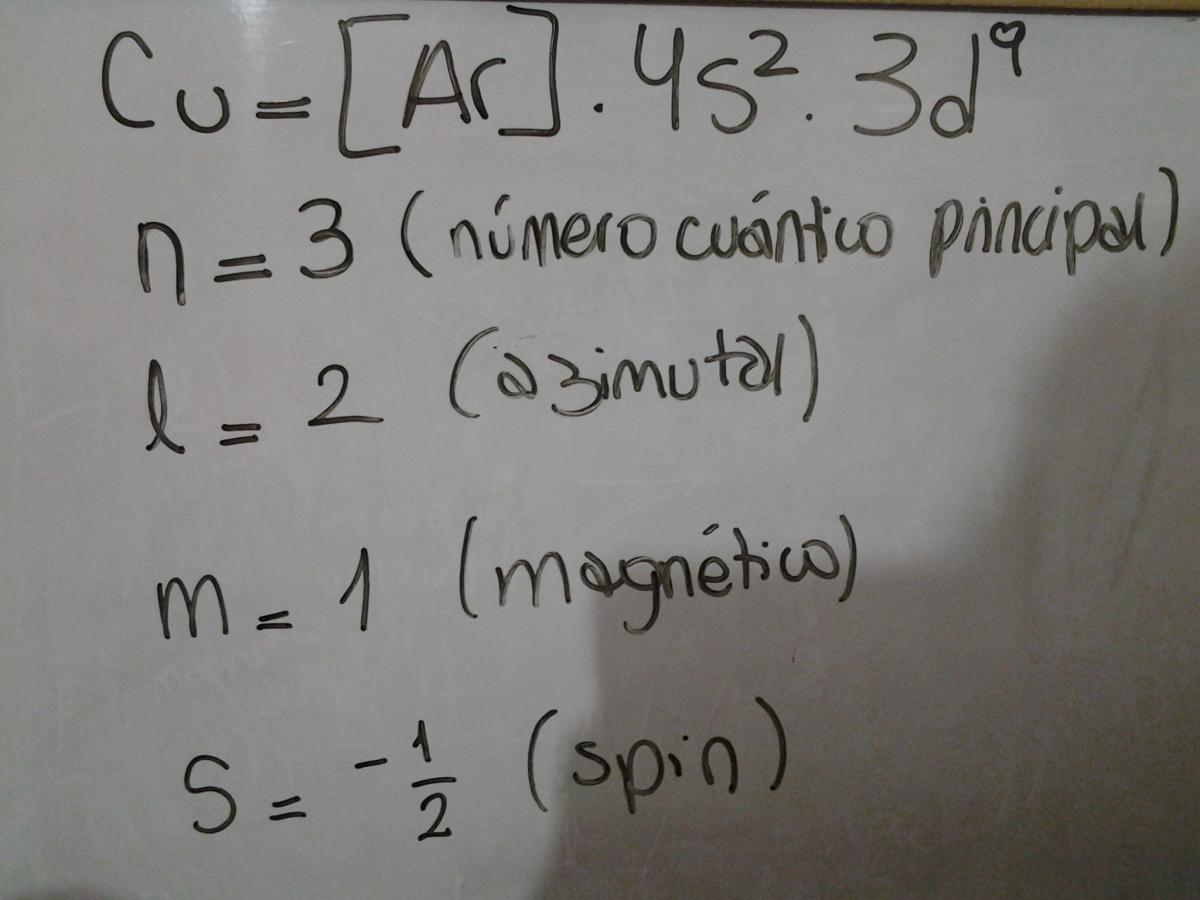 Cu = [Ar] . 4s² . 3d⁹
n = 3 (número cuántico principal)
l = 2 (azimutal)
m = 1 (magnético)
S = -1/2 (spin)